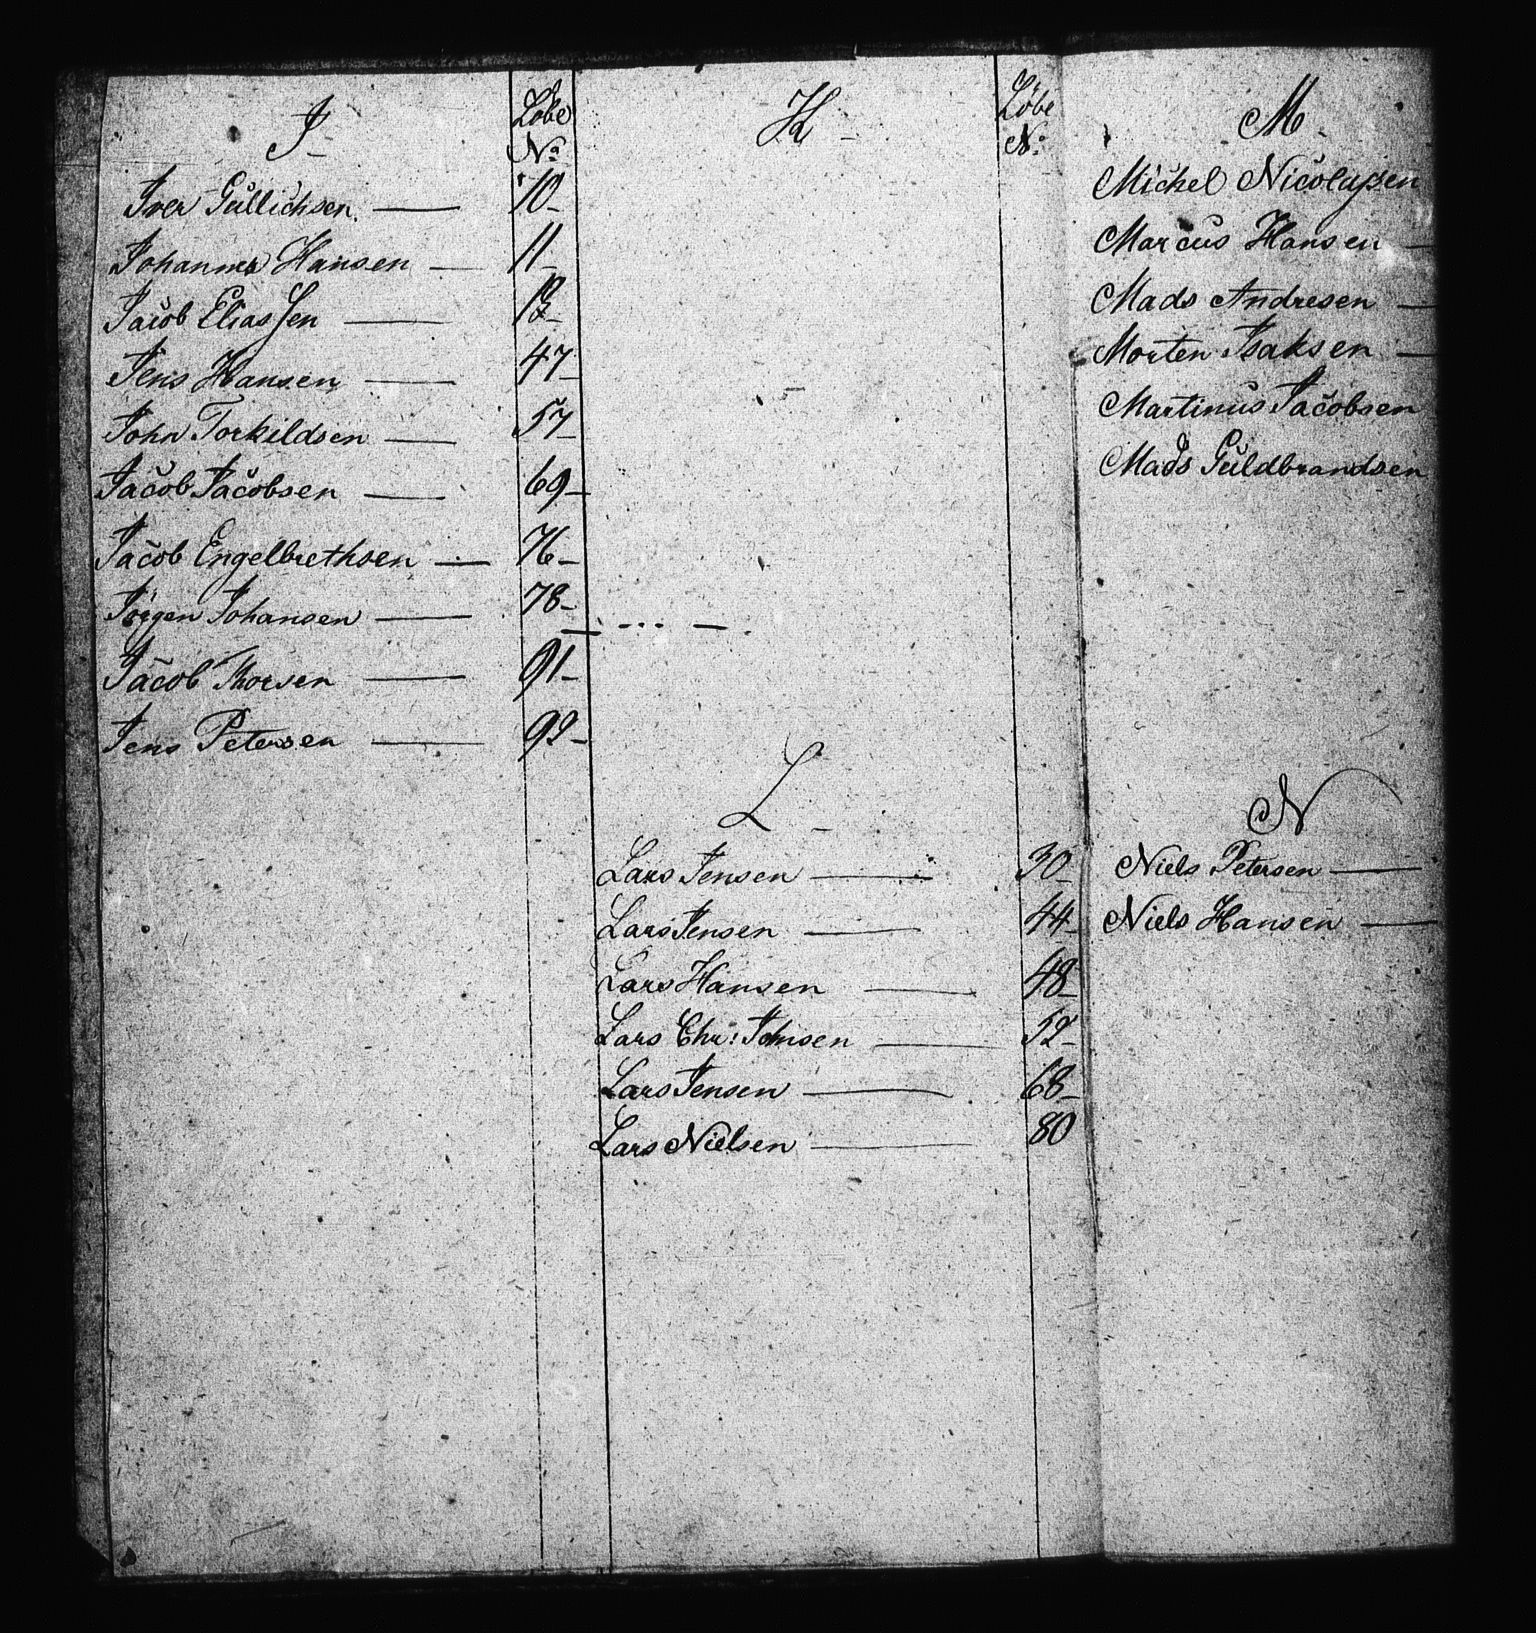 J
Løbe
No
Iver Gullichsen 10
Johannes Hansen 11
Jacob Eliassen
Jens Hansen 47
John Torkildsen 57
Jacob Jacobsen 69
Jacob Engelbrethsen 76
Jørgen Johansen 78
Jacob Thorsen 91
Jens Petersen 92
K
Løbe
No
L
Lars Jensen 30
Lars Jensen 44
Lars Hansen 48
Lars Chr: 52
Lars Jensen 68
Lars Nielsen 80
M
Michel Nicolaysen
Marcus Hansen
Mads Andresen
Morten Isaksen
Martinus Jacobsen
Mads Guldbrandsen
N
Niels Petersen
Niels Hansen